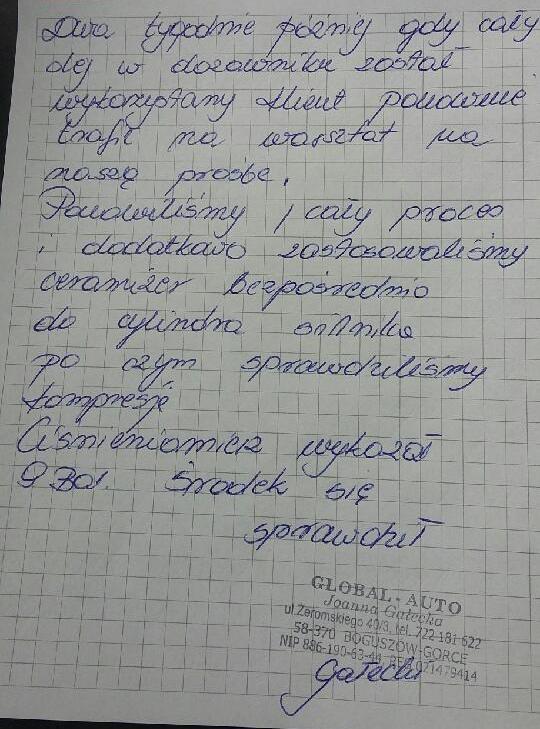 Dwa tygodnie później gdy cały
olej w dozowniku został
wykorzystany klient ponownie
trafił na warsztat na
naszą prośbę.
Ponowiliśmy cały proces
i dodatkowo zastosowaliśmy
ceramizer bezpośrednio
do cylindra silnika
po czym sprawdziliśmy
kompresję
Ciśnieniomierz wykazał
9 Bar. Środek się
sprawdził
GLOBAL - AUTO
Joanna Gałecka
ul. Żeromskiego 40/3, tel. 722 181 622
58-370 BOGUSZÓW-GORCE
NIP 886-190-63-44 REG. 021479414